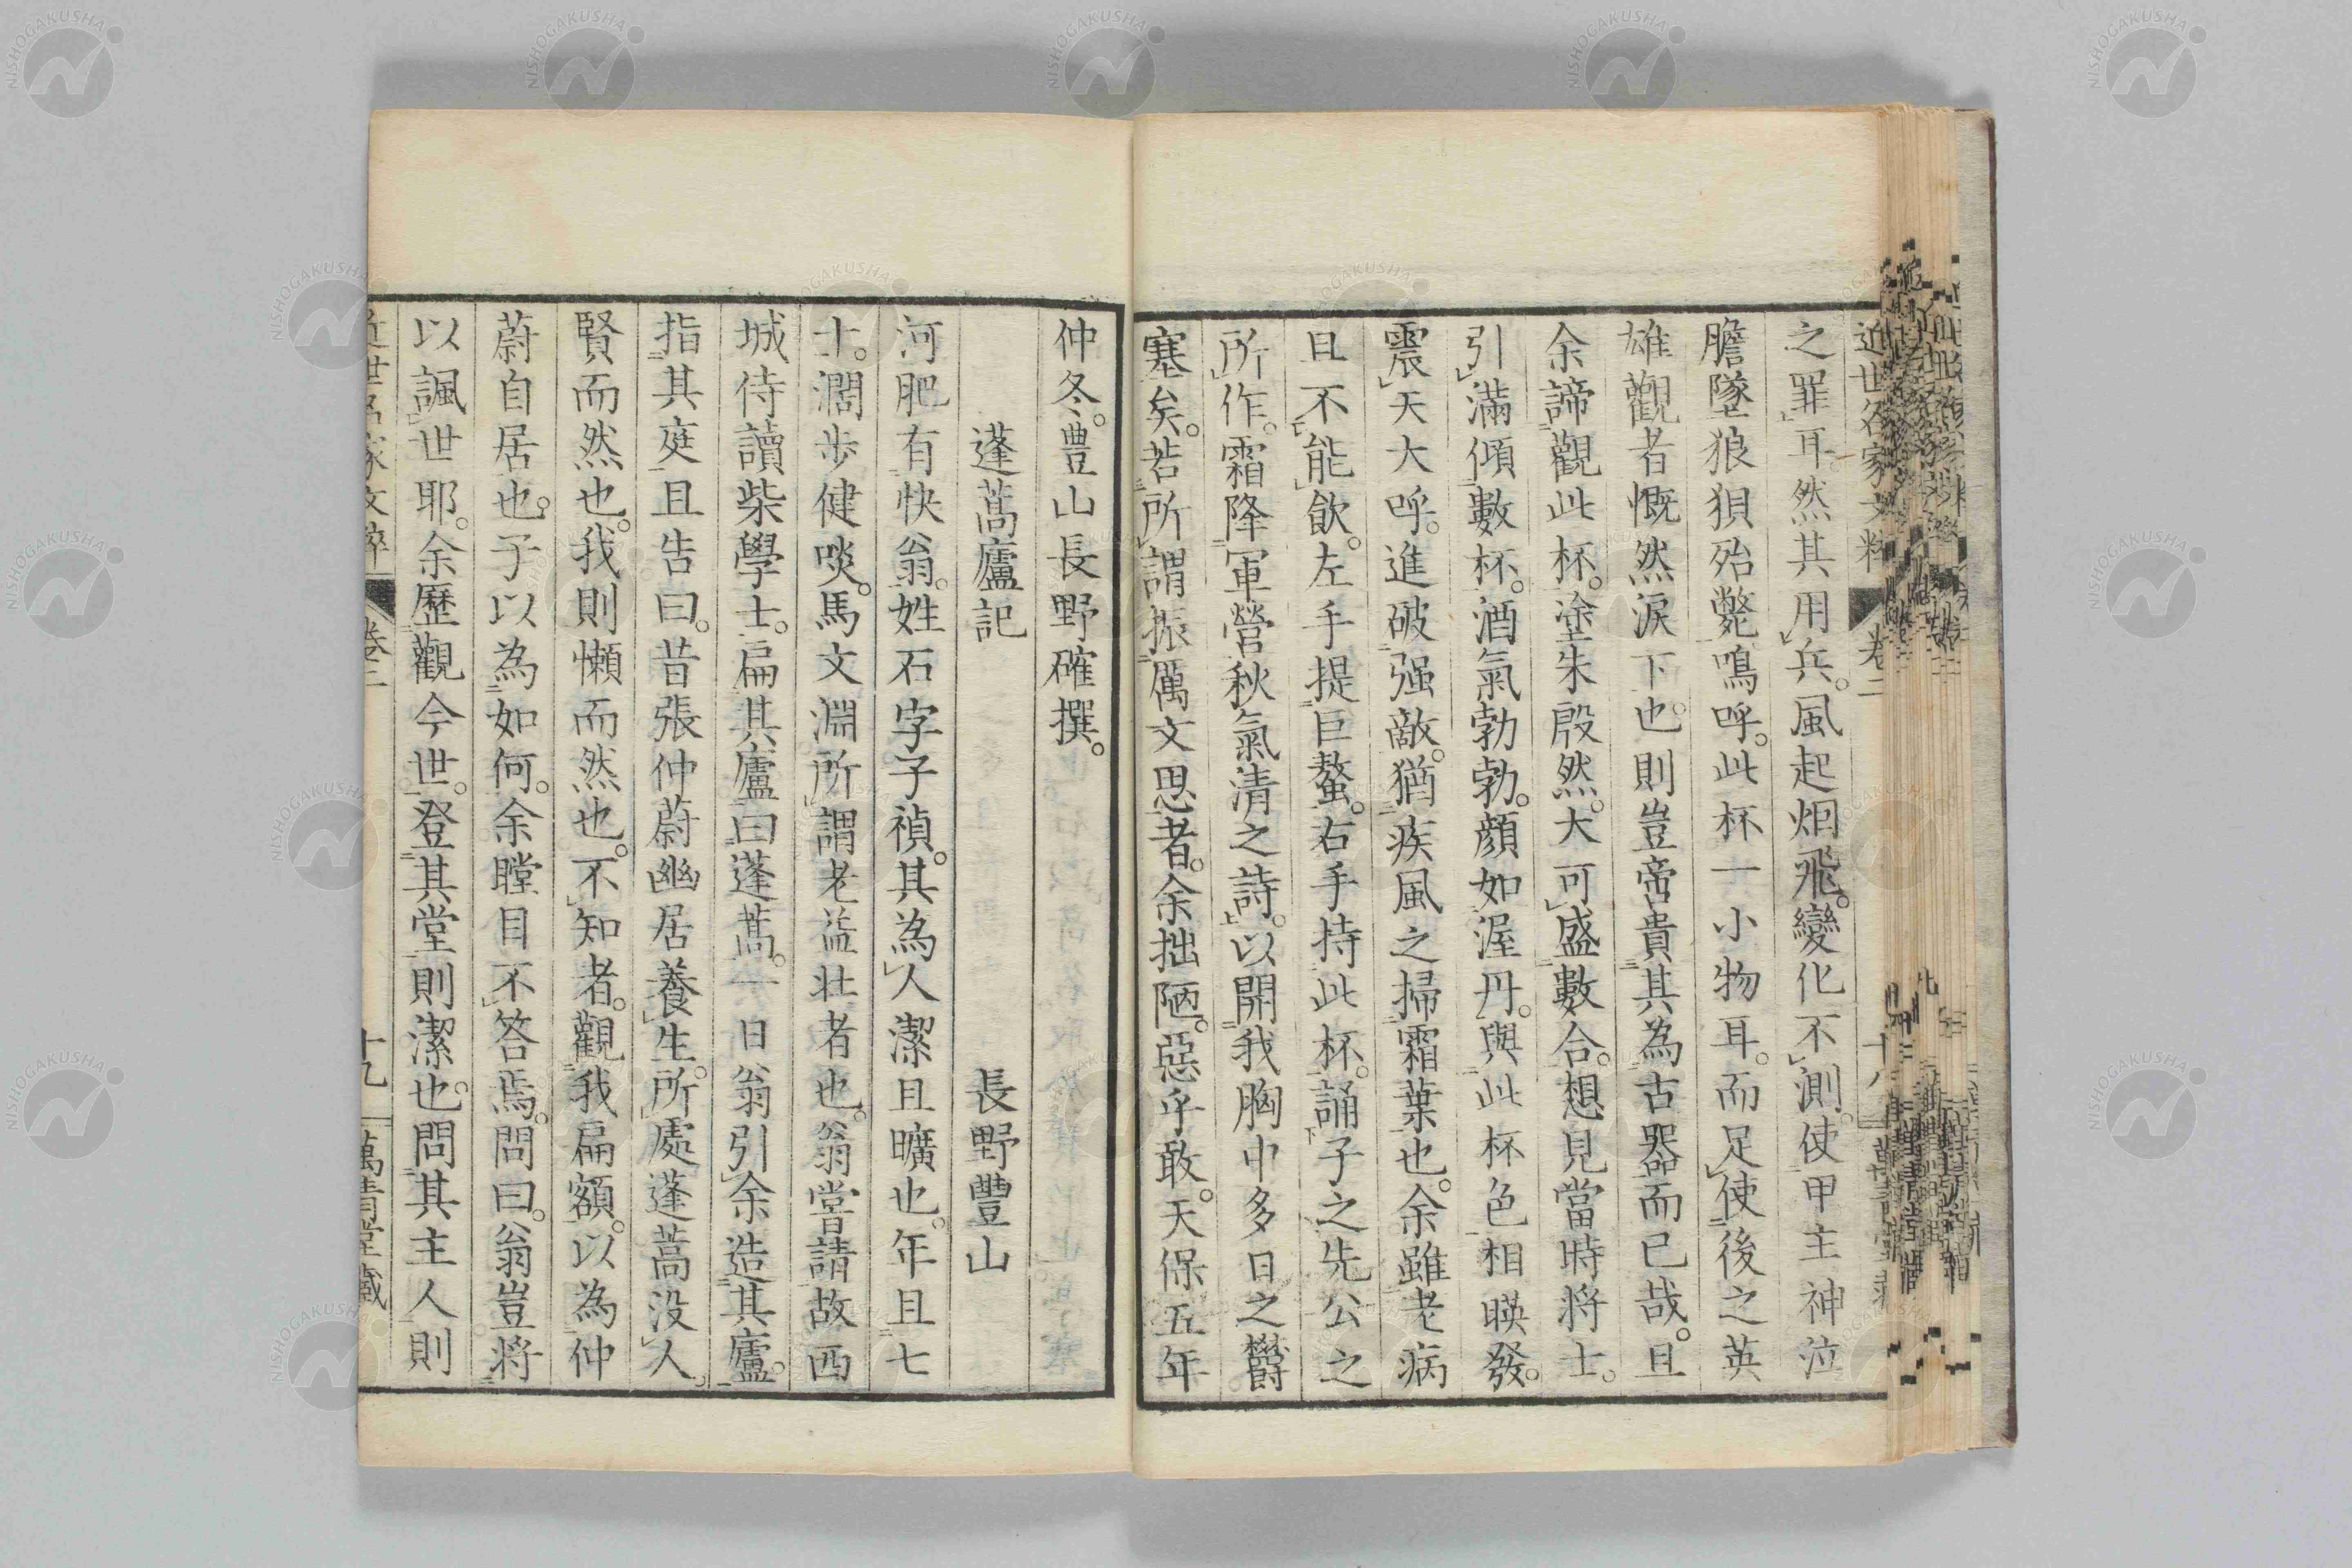 近世名家文粹 卷二 十八
之罪耳。然其用兵。風起烟飛。變化不測。使甲主神泣
膽墜狼狽殆斃。嗚呼。此杯一小物耳。而足使後之英
雄觀者慨然淚下也。則豈啻貴其為古器而已哉。且
余諦觀此杯。塗朱殷然。大可盛數合。想見當時將士。
引滿傾數杯。酒氣勃勃。顏如渥丹。與此杯色相暎發。
震天大呼。進破强敵。猶疾風之掃霜葉也。余雖老病
且不能飲。左手提巨螯。右手持此杯。誦子之先公之
所作。霜降軍營秋氣清之詩。以開我胸中多日之欝
塞矣。若所謂振厲文思者。余拙陋。惡乎敢。天保五年
仲冬。豊山長野確撰。
蓬蒿廬記 長野豐山
河肥有快翁。姓石字子禎。其為人潔且曠也。年且七
十。濶步健啖。馬文淵所謂老益壯者也。翁嘗請故西
城侍讀柴學士。扁其廬曰蓬蒿。一日翁引余造其廬。
指其庭且告曰。昔張仲蔚幽居養生。所處蓬蒿沒人。
賢而然也。我則懶而然也。不知者。觀我扁額。以為仲
蔚自居也。子以為如何。余瞠目不答焉。問曰。翁豈將
以諷世耶。余歷觀今世。登其堂則潔也。問其主人則
近世名家文粹 卷二 十九 萬青堂藏